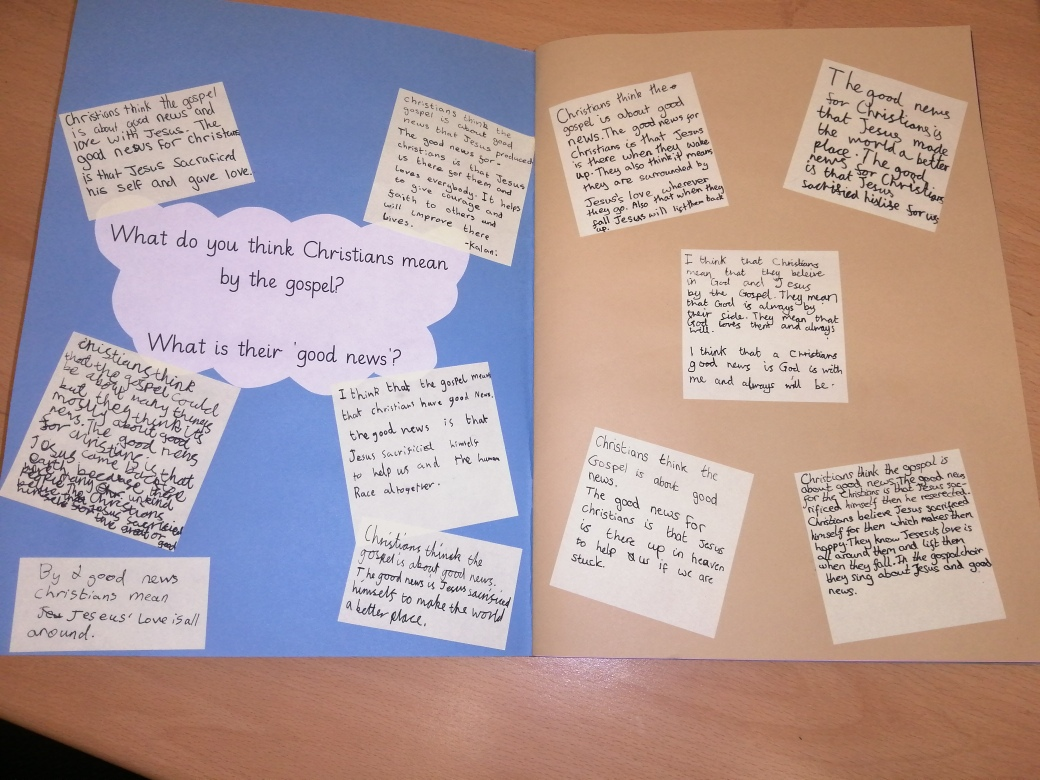 Christians think the gospel
is about good news and
love with Jesus. The
good news for christians
is that Jesus Sacrificed
his self and gave love.
christians think the
gospel is about good
news that Jesus produced
The good news for-
christians is that Jesus
is there for them and
Loves everybody. It helps
to give courage and
faith to others and
will improve there
Lives.
-Kalani
What do you think Christians mean
by the gospel?
What is their 'good news'?
christians think
that the gospel could
be about many things
but they think its
mostly about good
news. The good news
for christians is that
Jesus came back to
earth because there
were many unkind
people. The Christians
think Jesus sacrificed
I think that the gospel means
that christians have good News.
the good news is that
Jesus sacrificied himself
to help us and the human
Race altogether.
By good news
christians mean
Jeseus' Love is all
around.
Christians think the
gospel is about good news.
The good news is Jesus sacrificed
himself to make the world
a better place.
Christians think the
gospel is about good
news. The good news for
Christians is that Jesus
is there when they wake
up. They also think it means
they are surrounded by
Jesus's love, wherever
they go. Also that when they
fall Jesus will lift them back
up.
The good news
for Christians is
that Jesus made
the world a better
place. The good
news for Christians
is that Jesus
sacrifised his lise for us
I think that Christians
mean that they beleive
in God and Jesus
by the Gospel. They mean
that God is always by
their side. They mean that
God loves them and always
will.
I think that a Christians
good news is God is with
me and always will be.
Christians think the
Gospel is about good
news.
The good news for
christians is that Jesus
is there up in heaven
to help us if we are
stuck.
Christians think the gospal is
about good news. The good news
for the Christians is that Jesus sac-
rificed himself then he reserected.
Christians believe Jesus sacrificed
himself for them which makes them
happy. They know Jesesus love is
all around them and list them
when they fall. In the gospal choir
they sing about Jesus and good
news.